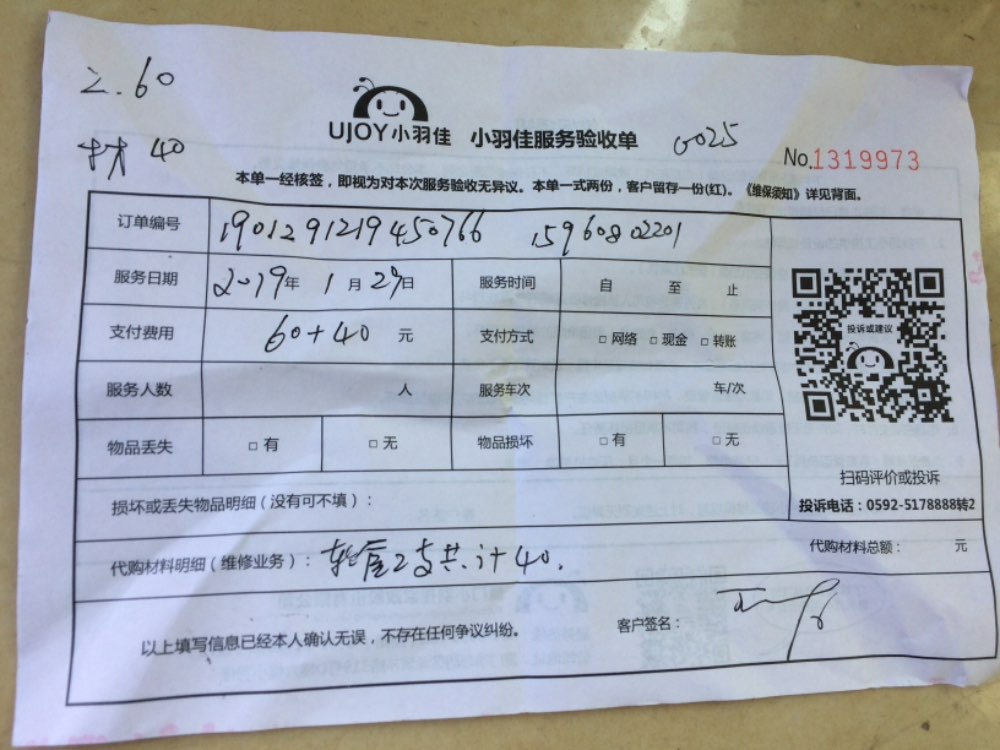 工.60
材 40
UJOY小羽佳 小羽佳服务验收单 0025
No.1319973
本单一经核签，即视为对本次服务验收无异议。本单一式两份，客户留存一份(红)。《维保须知》详见背面。
订单编号 1901291219450766 15960802201
服务日期 2019年 1月29日 服务时间 自 至 止
支付费用 60+40 元 支付方式 □网络 □现金 □转账
投诉或建议
服务人数 人 服务车次 车/次
物品丢失 □有 □无 物品损坏 □有 □无
扫码评价或投诉
投诉电话：0592-5178888转2
损坏或丢失物品明细（没有可不填）：
代购材料明细（维修业务）：软管2支共计40. 代购材料总额： 元
以上填写信息已经本人确认无误，不存在任何争议纠纷。 客户签名：